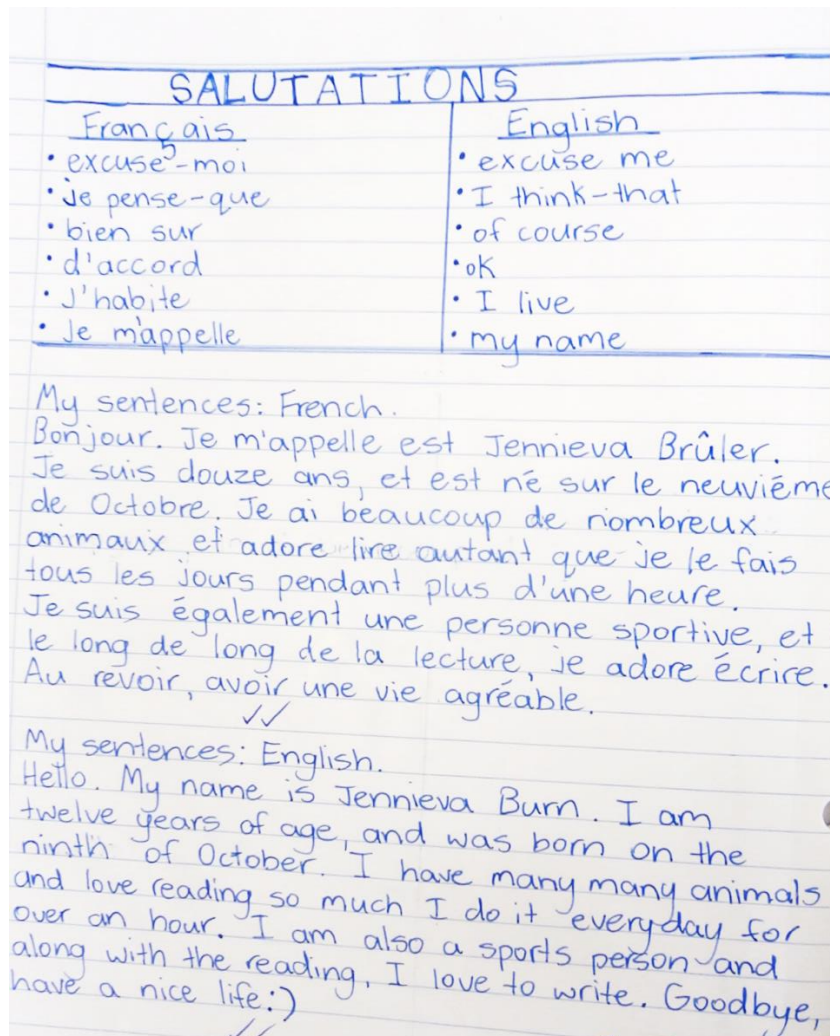 SALUTATIONS
Français English
• excuse5-moi • excuse me
• je pense-que • I think-that
• bien sur • of course
• d'accord • ok
• J'habite • I live
• Je m'appelle • my name
My sentences: French.
Bonjour. Je m'appelle est Jennieva Brûler.
Je suis douze ans, et est né sur le neuviéme
de Octobre. Je ai beaucoup de nombreux
animaux et adore lire autant que je le fais
tous les jours pendant plus d'une heure.
Je suis également une personne sportive, et
le long de long de la lecture, je adore écrire.
Au revoir, avoir une vie agréable.
✓✓
My sentences: English.
Hello. My name is Jennieva Burn. I am
twelve years of age, and was born on the
ninth of October. I have many many animals
and love reading so much I do it everyday for
over an hour. I am also a sports person and
along with the reading, I love to write. Goodbye,
have a nice life:)